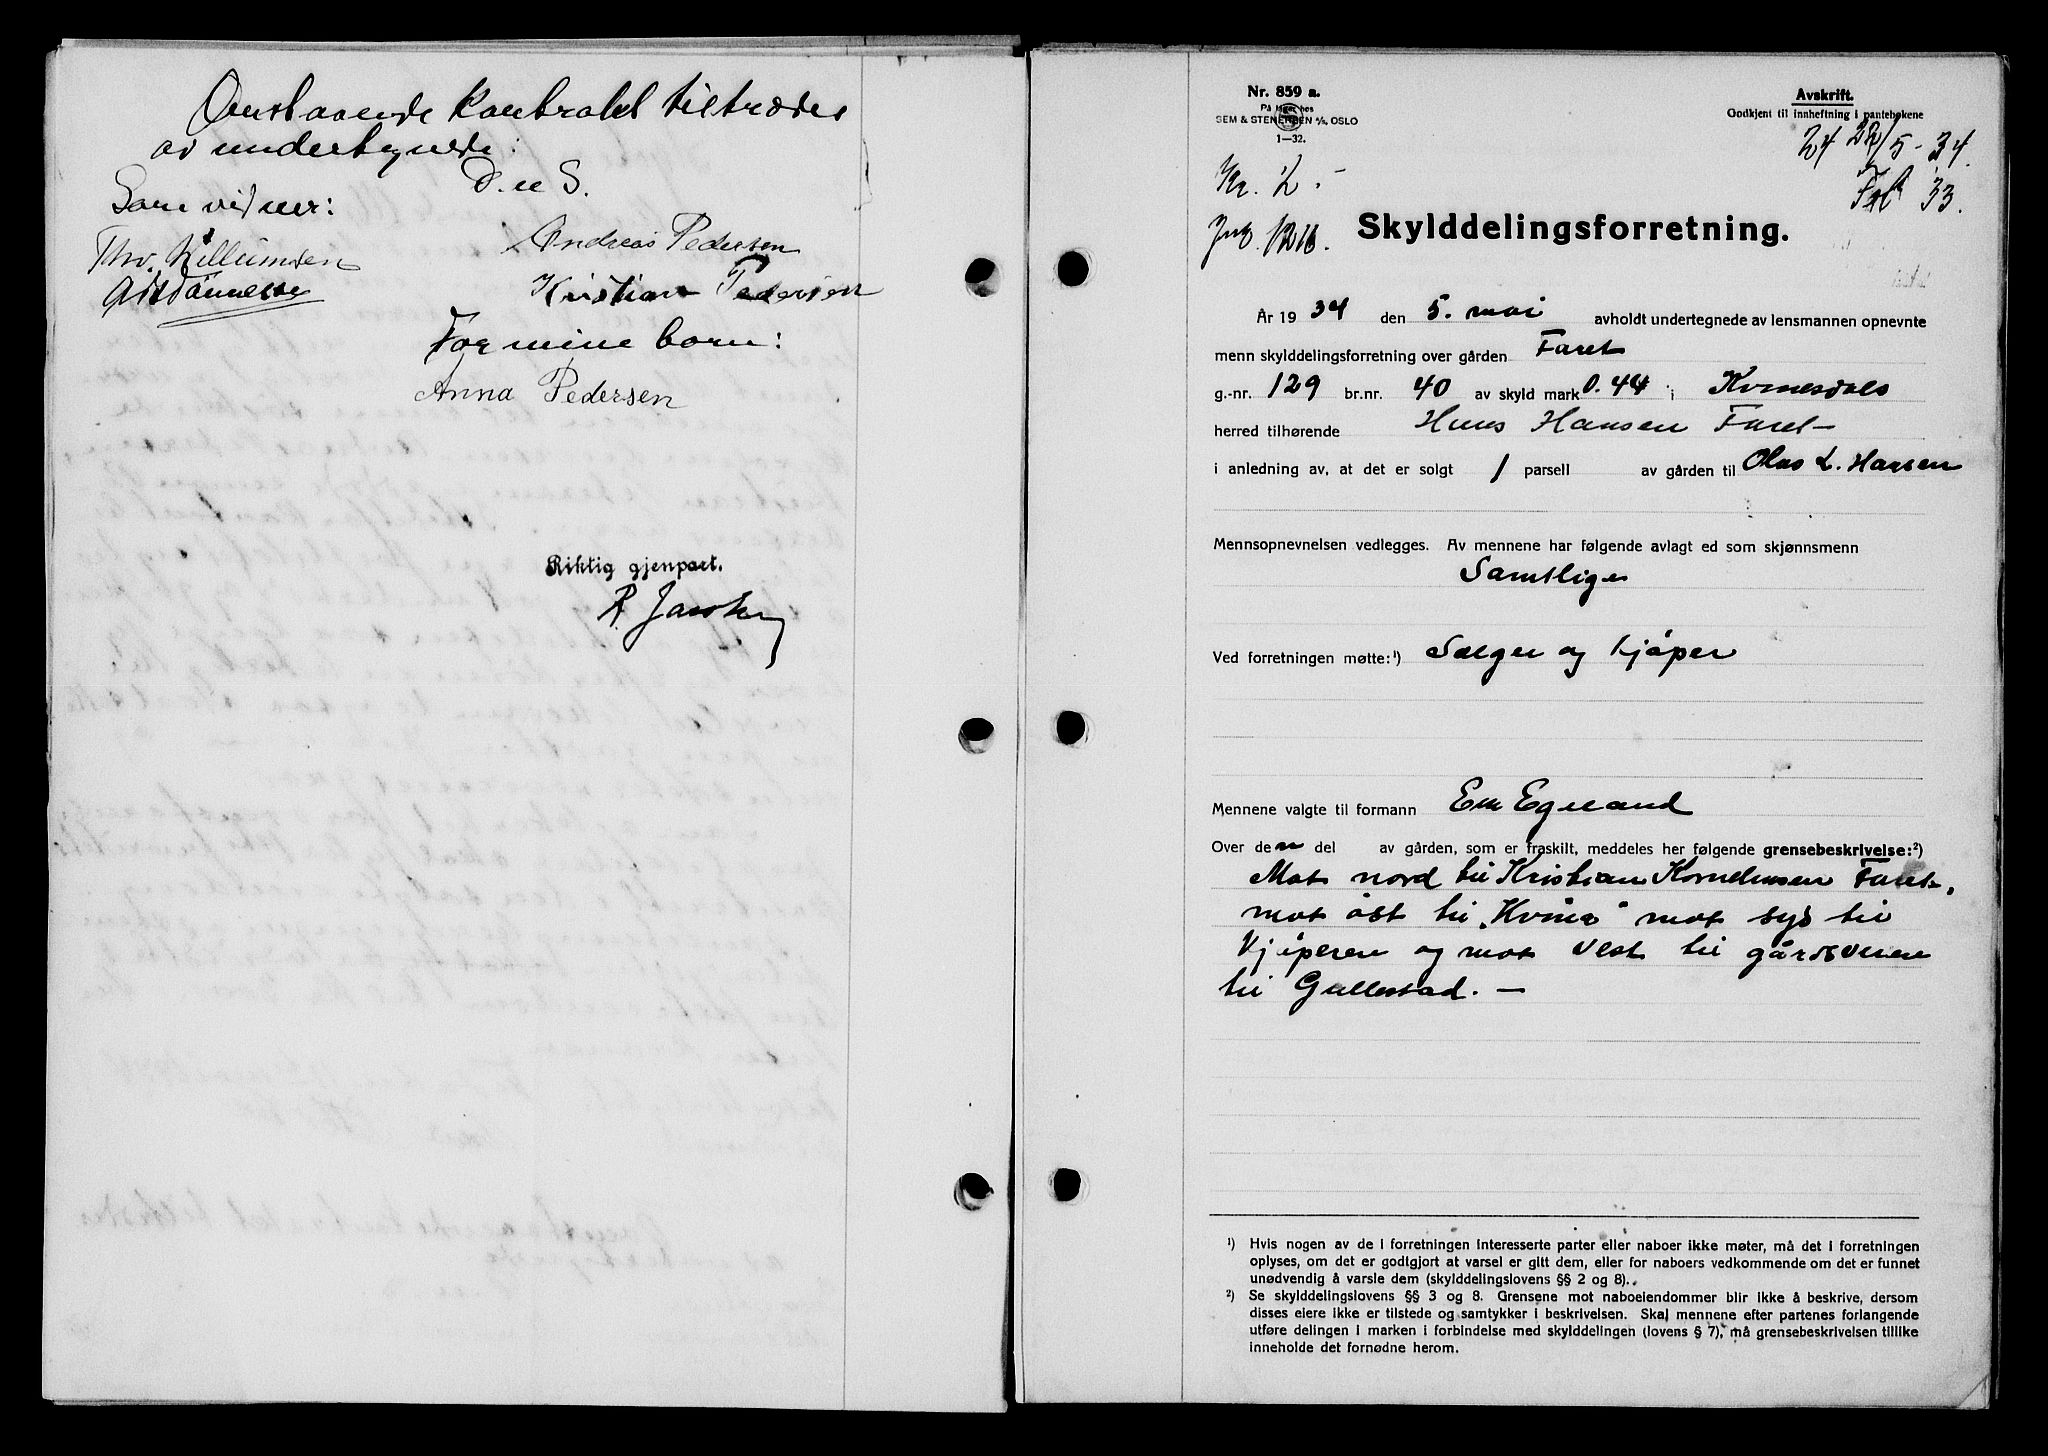 Omstaaende kontrakt tiltrædes
av undertegnede:
D. u S.
Som vidner:
Andreas Pedersen
Kristian Pedersen
For mine born:
Anna Pedersen
Riktig gjenpart.
Nr. 859 a.
På lager hos
SEM & STENERSEN A/S, OSLO
1—32.
Avskrift.
Godkjent til innheftning i pantebøkene
24 22/5-34.
Fol 33.
Kr. 2.-
Skylddelingsforretning.
År 1934 den 5. mai avholdt undertegnede av lensmannen opnevnte
menn skylddelingsforretning over gården Faret
g.-nr. 129 br.nr. 40 av skyld mark 0.44 i Kvinesdals
herred tilhørende Hans Hansen Faret
i anledning av, at det er solgt 1 parsell av gården til Olas L. Hansen
Mennsopnevnelsen vedlegges. Av mennene har følgende avlagt ed som skjønnsmenn
Samtlige
Ved forretningen møtte:¹) Sælger og kjøper
Mennene valgte til formann Em Egeland
Over den del av gården, som er fraskilt, meddeles her følgende grensebeskrivelse:²)
Mot nord til Kristian Korneliussen Faret,
mot øst til „Kvina" mot syd til
kjøperen og mot vest til gårdsveien
til Gullestad. —
¹) Hvis nogen av de i forretningen interesserte parter eller naboer ikke møter, må det i forretningen
oplyses, om det er godtgjort at varsel er gitt dem, eller for naboers vedkommende om det er funnet
unødvendig å varsle dem (skylddelingslovens §§ 2 og 8).
²) Se skylddelingslovens §§ 3 og 8. Grensene mot naboeiendommer blir ikke å beskrive, dersom
disses eiere ikke er tilstede og samtykker i beskrivelsen. Skal mennene efter partenes forlangende
utføre delingen i marken i forbindelse med skylddelingen (lovens § 7), må grensebeskrivelsen tillike
inneholde det fornødne herom.